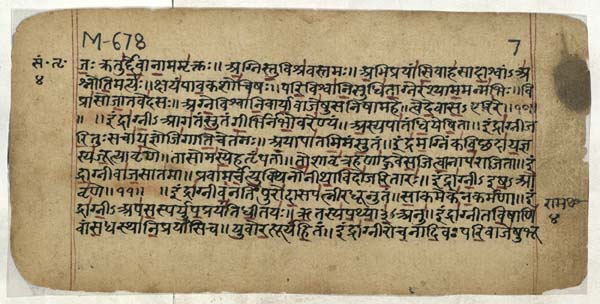 M-678 7
सं॰ तृ॰
४
जः क्रतुर्देवानाममृक्तः॥ अग्निस्तुविश्रवस्तमः॥ अभिप्रयांसिवाहसादाश्वाँऽअ
श्नोतिमर्त्यः॥ क्षयंपावकशोचिषः॥ परिविश्वानिसुधिताग्नेरश्याममन्मभिः॥ वि
प्रासोजातवेदसः॥ अग्नेविश्वानिवार्यावाजेषुसनिषामहे॥ त्वेदेवासऽएरिरे॥१०॥
॥ इंद्राग्नीऽआगतंसुतंगीर्भिर्नभोवरेण्यं॥ अस्यपातंधियेषिता॥ इंद्राग्नीज
रितुःसचायज्ञोजिगातिचेतनः॥ अयापातमिमंसुतं॥ इंद्रमग्निंकविच्छदायज्ञ
स्यजूत्यावृणे॥ तासोमस्येहतृंपतां॥ तोशावृत्रहणाहुवेसजित्वानापराजिता॥ इं
द्राग्नीवाजसातमा॥ प्रवामर्चंत्युक्थिनोनीथाविदोजरितारः॥ इंद्राग्नीऽइषऽआ
वृणे॥११॥ ॥ इंद्राग्नीनवतिंपुरोदासपत्नीरधूनुतं॥ साकमेकेनकर्मणा॥ इं
द्राग्नीऽअपसस्पर्युपप्रयंतिधीतयः॥ ऋतस्यपथ्या३ऽअनु॥ इंद्राग्नीतविषाणि
वांसधस्थानिप्रयांसिच॥ युवोरप्तूर्यंहितं॥ इंद्राग्नीरोचनादिवःपरिवाजेषुभू
राम
४